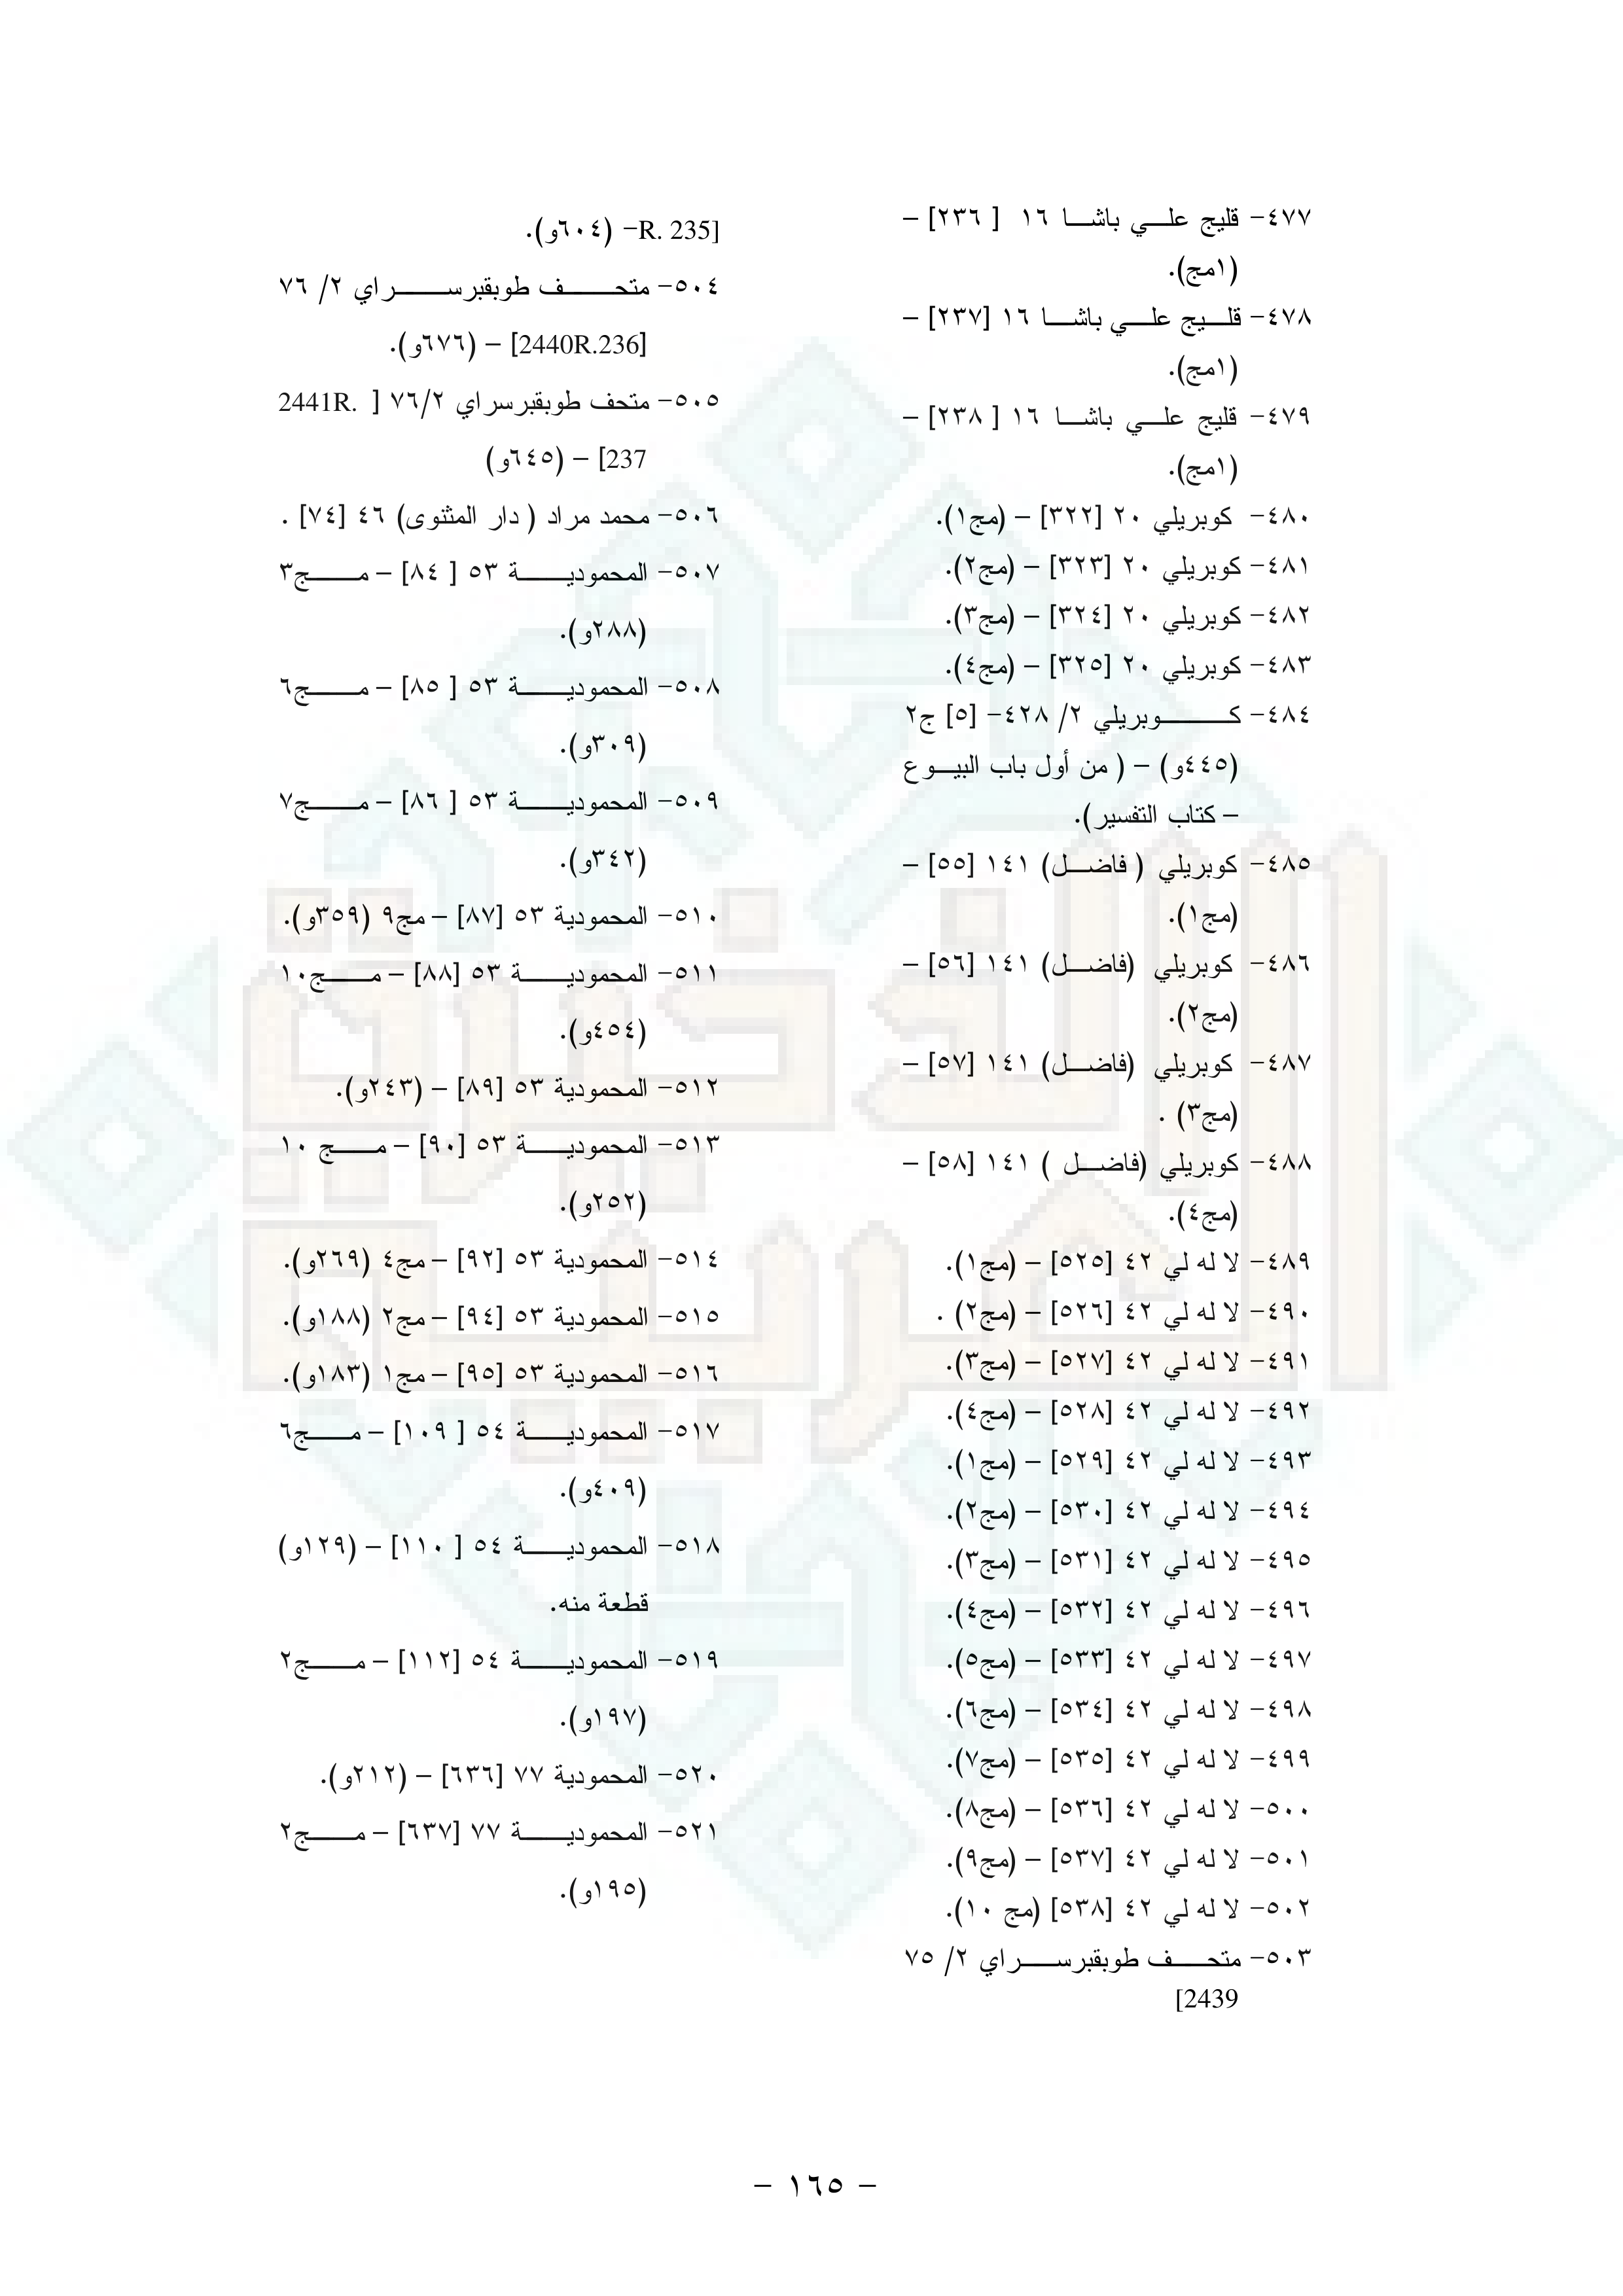 ٤٧٧- قليج علي باشا ١٦ [ ٢٣٦] –
(١مج).
٤٧٨- قليج علي باشا ١٦ [٢٣٧] –
(١مج).
٤٧٩- قليج علي باشا ١٦ [ ٢٣٨] –
(١مج).
٤٨٠- كوبريلي ٢٠ [٣٢٢] – (مج١).
٤٨١- كوبريلي ٢٠ [٣٢٣] – (مج٢).
٤٨٢- كوبريلي ٢٠ [٣٢٤] – (مج٣).
٤٨٣- كوبريلي ٢٠ [٣٢٥] – (مج٤).
٤٨٤- كوبريلي ٢/ ٤٢٨- [٥] ج٢
(٤٤٥و) – ( من أول باب البيوع
– كتاب التفسير).
٤٨٥- كوبريلي ( فاضل) ١٤١ [٥٥] –
(مج١).
٤٨٦- كوبريلي (فاضل) ١٤١ [٥٦] –
(مج٢).
٤٨٧- كوبريلي (فاضل) ١٤١ [٥٧] –
(مج٣) .
٤٨٨- كوبريلي (فاضل ) ١٤١ [٥٨] –
(مج٤).
٤٨٩- لا له لي ٤٢ [٥٢٥] – (مج١).
٤٩٠- لا له لي ٤٢ [٥٢٦] – (مج٢) .
٤٩١- لا له لي ٤٢ [٥٢٧] – (مج٣).
٤٩٢- لا له لي ٤٢ [٥٢٨] – (مج٤).
٤٩٣- لا له لي ٤٢ [٥٢٩] – (مج١).
٤٩٤- لا له لي ٤٢ [٥٣٠] – (مج٢).
٤٩٥- لا له لي ٤٢ [٥٣١] – (مج٣).
٤٩٦- لا له لي ٤٢ [٥٣٢] – (مج٤).
٤٩٧- لا له لي ٤٢ [٥٣٣] – (مج٥).
٤٩٨- لا له لي ٤٢ [٥٣٤] – (مج٦).
٤٩٩- لا له لي ٤٢ [٥٣٥] – (مج٧).
٥٠٠- لا له لي ٤٢ [٥٣٦] – (مج٨).
٥٠١- لا له لي ٤٢ [٥٣٧] – (مج٩).
٥٠٢- لا له لي ٤٢ [٥٣٨] (مج ١٠).
٥٠٣- متحف طوبقبرسراي ٢/ ٧٥
[2439
R. 235]- (٦٠٤و).
٥٠٤- متحف طوبقبرسراي ٢/ ٧٦
[2440R.236] – (٦٧٦و).
٥٠٥- متحف طوبقبرسراي ٧٦/٢ [ 2441R.
237] – (٦٤٥و)
٥٠٦- محمد مراد ( دار المثنوى) ٤٦ [٧٤] .
٥٠٧- المحمودية ٥٣ [ ٨٤] – مج٣
(٢٨٨و).
٥٠٨- المحمودية ٥٣ [ ٨٥] – مج٦
(٣٠٩و).
٥٠٩- المحمودية ٥٣ [ ٨٦] – مج٧
(٣٤٢و).
٥١٠- المحمودية ٥٣ [٨٧] – مج٩ (٣٥٩و).
٥١١- المحمودية ٥٣ [٨٨] – مج١٠
(٤٥٤و).
٥١٢- المحمودية ٥٣ [٨٩] – (٢٤٣و).
٥١٣- المحمودية ٥٣ [٩٠] – مج ١٠
(٢٥٢و).
٥١٤- المحمودية ٥٣ [٩٢] – مج٤ (٢٦٩و).
٥١٥- المحمودية ٥٣ [٩٤] – مج٢ (١٨٨و).
٥١٦- المحمودية ٥٣ [٩٥] – مج١ (١٨٣و).
٥١٧- المحمودية ٥٤ [ ١٠٩] – مج٦
(٤٠٩و).
٥١٨- المحمودية ٥٤ [ ١١٠] – (١٢٩و)
قطعة منه.
٥١٩- المحمودية ٥٤ [١١٢] – مج٢
(١٩٧و).
٥٢٠- المحمودية ٧٧ [٦٣٦] – (٢١٢و).
٥٢١- المحمودية ٧٧ [٦٣٧] – مج٢
(١٩٥و).
– ١٦٥ –